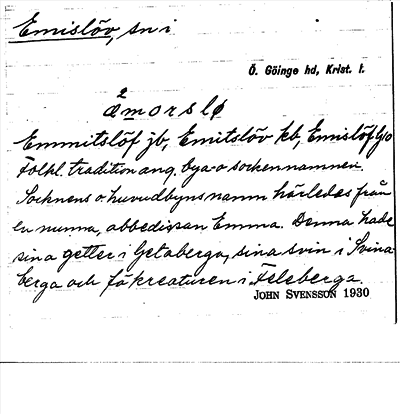 Emislöv, sn i
Ö. Göinge hd, Krist. l.
Emmitslöf jb, Emitslöv kb, Emislöf Gjo
Folkl. tradition ang. bya- o sockennamnen.
Socknens o huvudbyns namn härledes från
en nunna, abbedissan Emma. Denna hade
sina getter i Getaberga, sina svin i Svina-
berga och fäkreaturen i Feleberga.
JOHN SVENSSON 1930